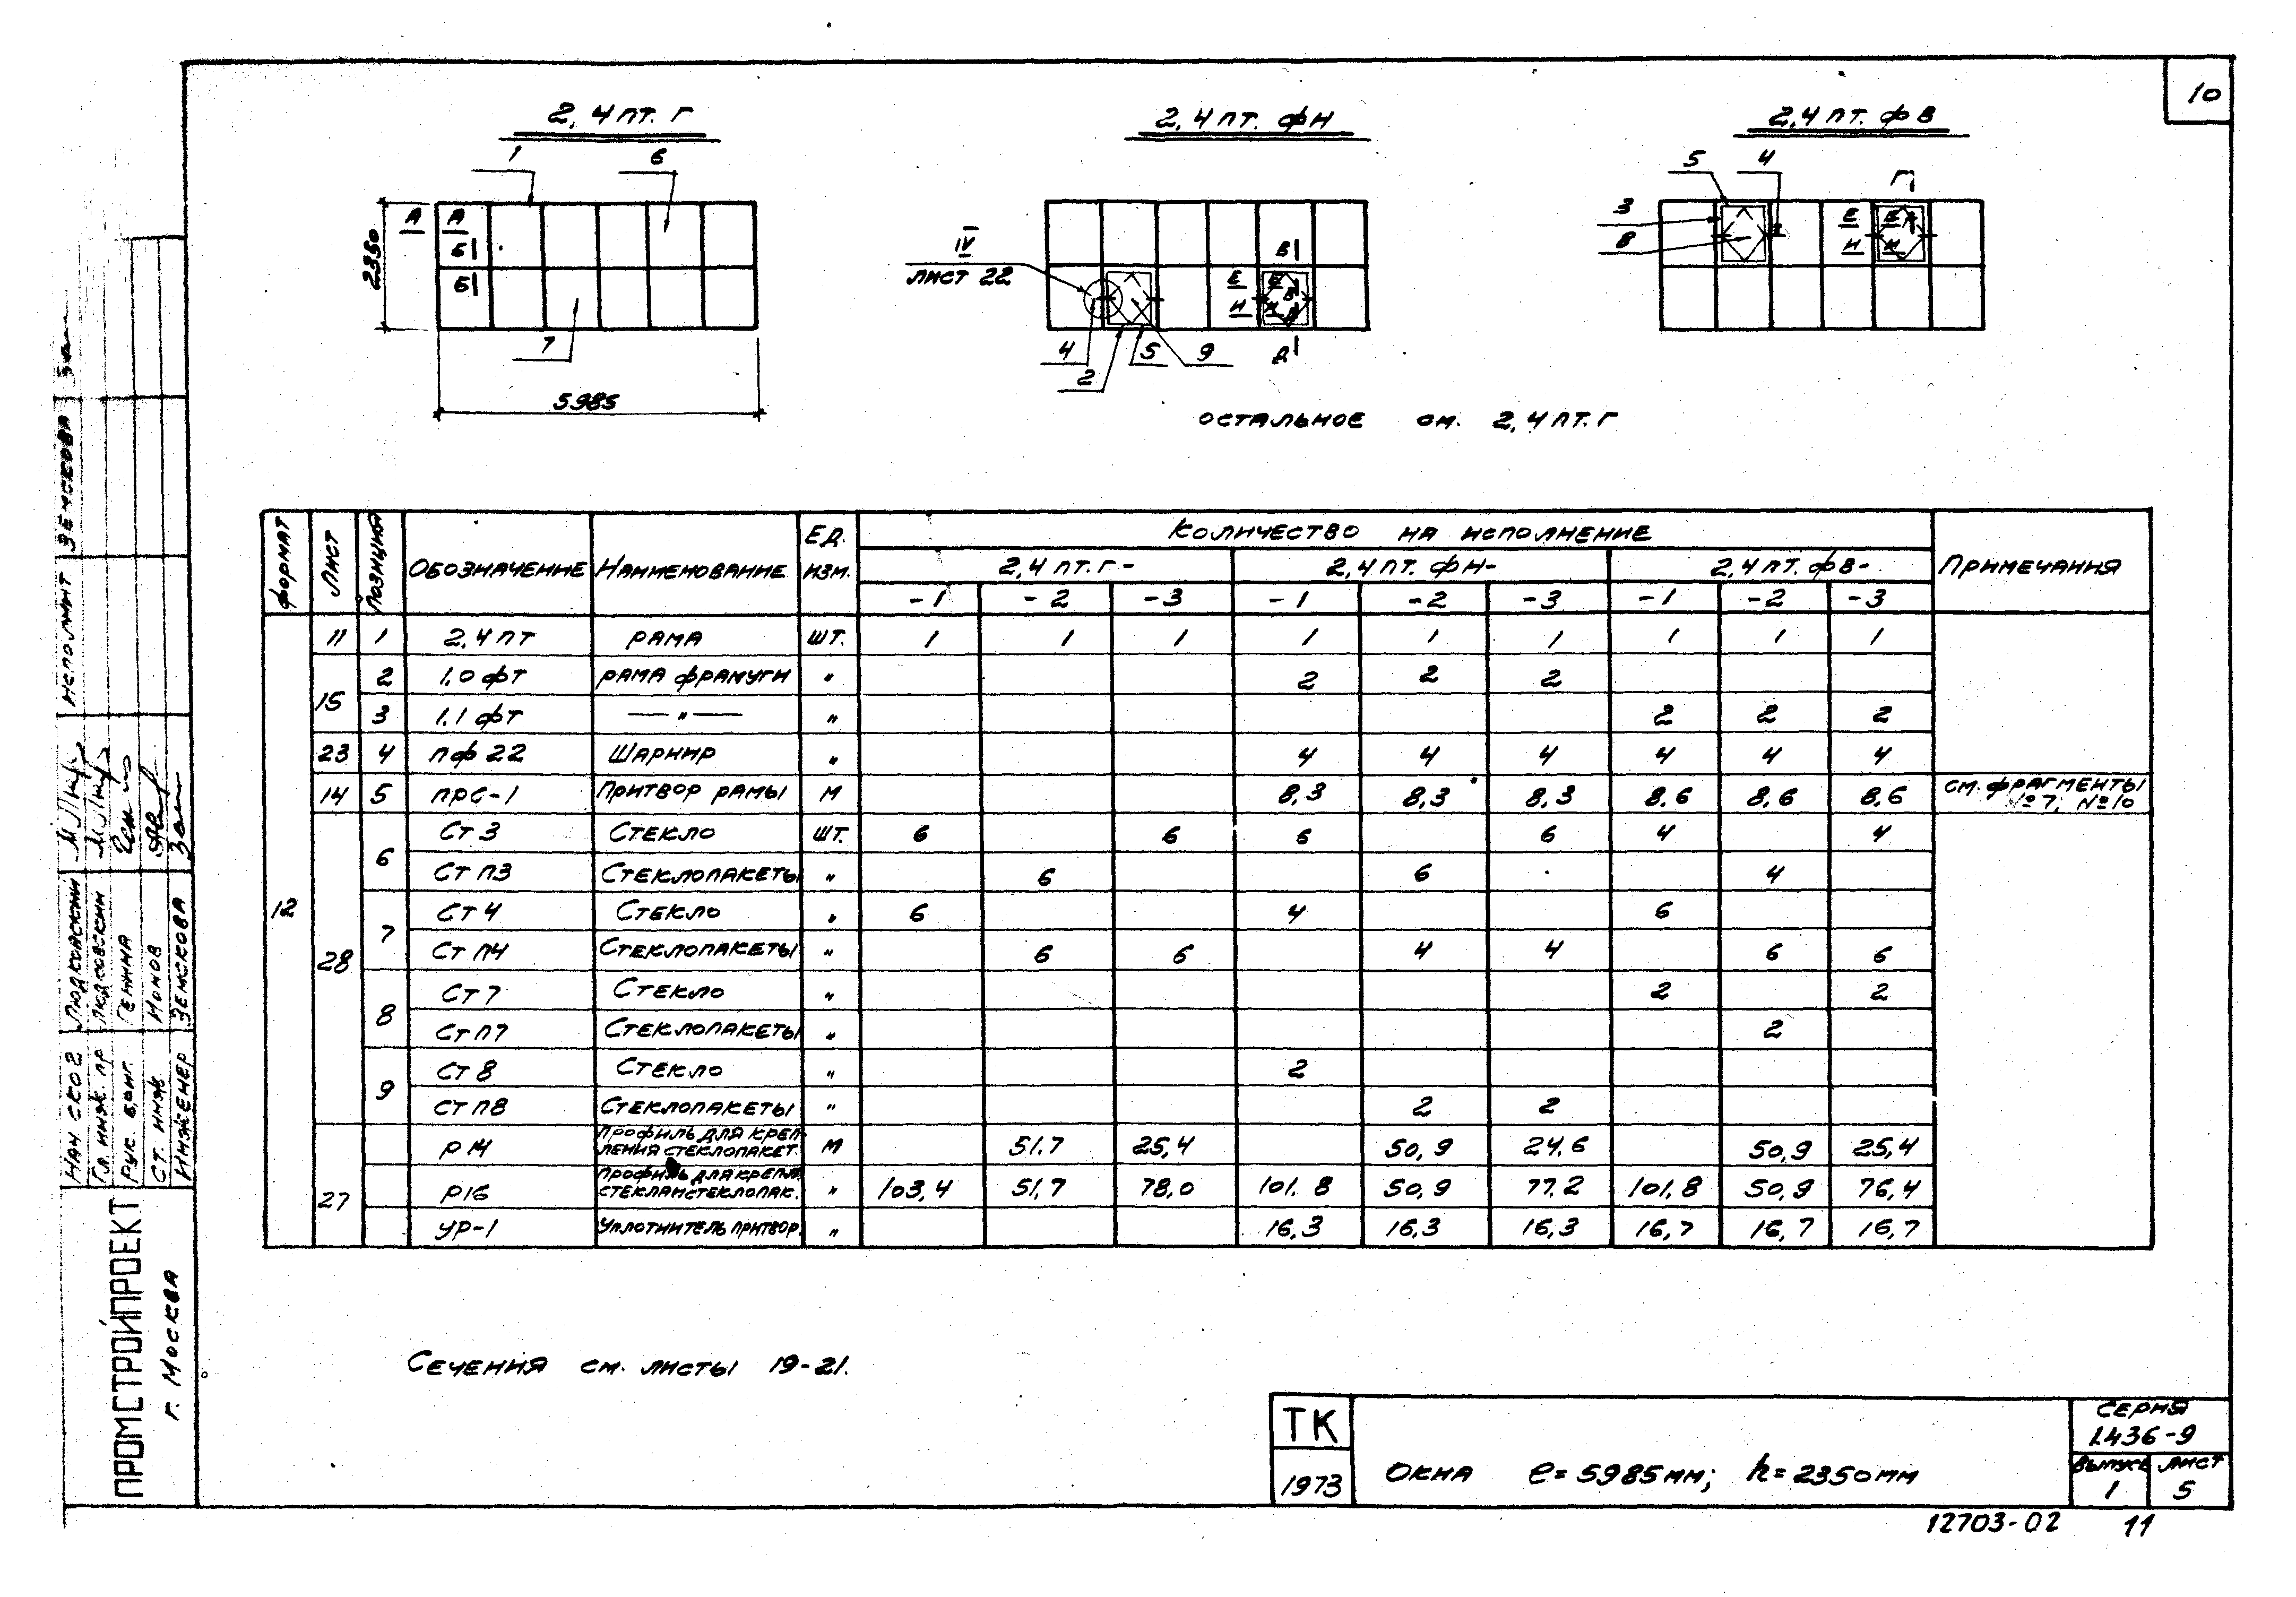 10
2,4 ПТ. Г
2,4 ПТ. ФН
2,4 ПТ. ФВ
1
6
А
А
Б
Б
7
2350
5985
IV
ЛИСТ 22
В
Е
Е
В
И
И
Д
Д
4
2
5
9
5
4
3
8
Г
Е
Е
Г
И
И
ОСТАЛЬНОЕ СМ. 2,4 ПТ. Г
ФОРМАТ
ЛИСТ
ПОЗИЦИЯ
ОБОЗНАЧЕНИЕ
НАИМЕНОВАНИЕ
ЕД. ИЗМ.
КОЛИЧЕСТВО НА ИСПОЛНЕНИЕ
ПРИМЕЧАНИЯ
2,4 ПТ. Г- 2,4 ПТ. ФН- 2,4 ПТ. ФВ-
-1 -2 -3 -1 -2 -3 -1 -2 -3
12
11 1 2,4 ПТ РАМА ШТ. 1 1 1 1 1 1 1 1 1
15 2 1,0 ФТ РАМА ФРАМУГИ " 2 2 2
3 1.1 ФТ — " — " 2 2 2
23 4 ПФ 22 ШАРНИР " 4 4 4 4 4 4
14 5 ПРС-1 ПРИТВОР РАМЫ М 8,3 8,3 8,3 8,6 8,6 8,6 СМ. ФРАГМЕНТЫ №7; №10
28 6 СТ 3 СТЕКЛО ШТ. 6 6 6 6 4 4
СТ П3 СТЕКЛОПАКЕТЫ " 6 6 4
7 СТ 4 СТЕКЛО " 6 4 6
СТ П4 СТЕКЛОПАКЕТЫ " 6 6 4 4 6 6
8 СТ 7 СТЕКЛО " 2 2
СТ П7 СТЕКЛОПАКЕТЫ " 2
9 СТ 8 СТЕКЛО " 2
СТ П8 СТЕКЛОПАКЕТЫ " 2 2
27 Р14 ПРОФИЛЬ ДЛЯ КРЕП-ЛЕНИЯ СТЕКЛОПАКЕТ. М 51,7 25,4 50,9 24,6 50,9 25,4
Р16 ПРОФИЛЬ ДЛЯ КРЕПЛ. СТЕКЛА И СТЕКЛОПАК. " 103,4 51,7 78,0 101.8 50,9 77.2 101,8 50,9 76,4
УР-1 УПЛОТНИТЕЛЬ ПРИТВОР. " 16,3 16,3 16,3 16,7 16,7 16,7
СЕЧЕНИЯ СМ. ЛИСТЫ 19-21.
ТК
1973
ОКНА ℓ=5985мм; h=2350мм
СЕРИЯ
1.436-9
ВЫПУСК
1
ЛИСТ
5
12703-02 11
ИСПОЛНИТ ЗЕМСКОВА
НАЧ СКО 2 ЛЮДКОВСКИЙ
ГЛ. ИНЖ. ПР ЛЮДКОВСКИЙ
РУК. БРИГ.
СТ. ИНЖ
ИНЖЕНЕР ЗЕМСКОВА
ПРОМСТРОЙПРОЕКТ
Г. МОСКВА